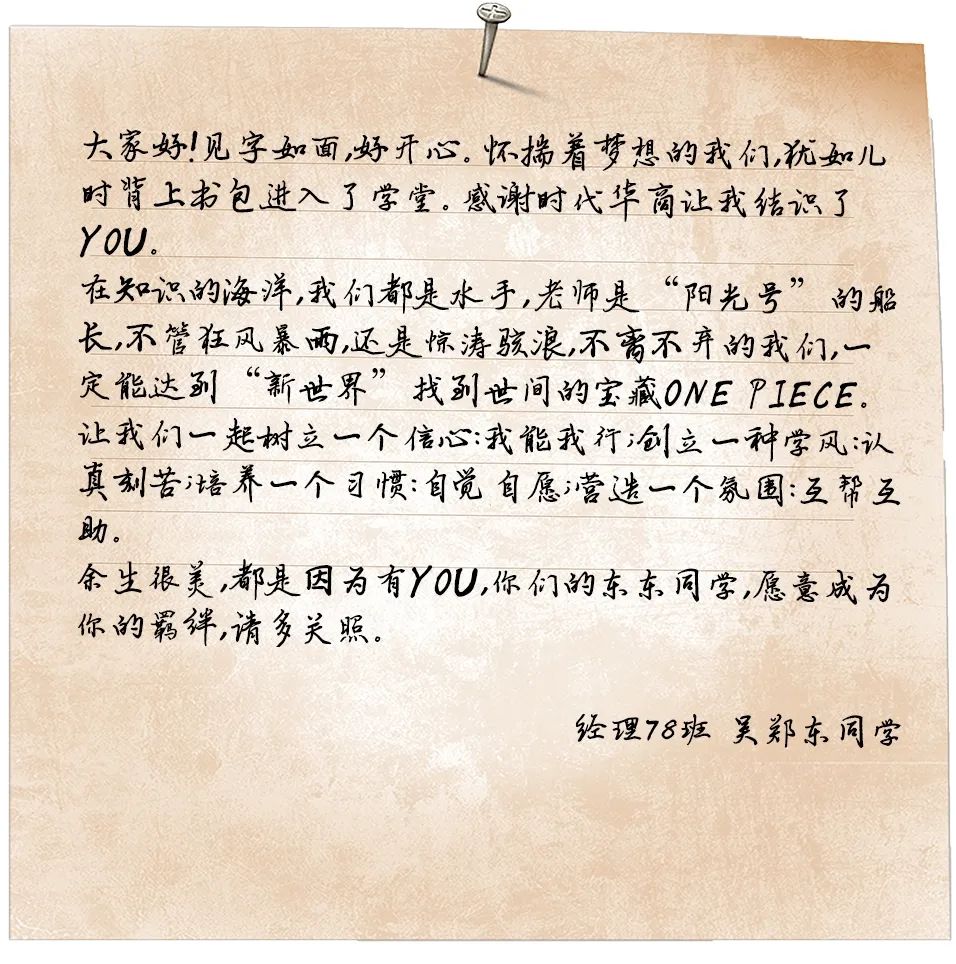 大家好!见字如面,好开心。怀揣着梦想的我们,犹如儿
时背上书包进入了学堂。感谢时代华商让我结识了
YOU。
在知识的海洋,我们都是水手,老师是“阳光号”的船
长,不管狂风暴雨,还是惊涛骇浪,不离不弃的我们,一
定能达到“新世界”找到世间的宝藏ONE PIECE。
让我们一起树立一个信心:我能我行;创立一种学风:认
真刻苦;培养一个习惯:自觉自愿;营造一个氛围:互帮互
助。
余生很美,都是因为有YOU,你们的东东同学,愿意成为
你的羁绊,请多关照。
经理78班 吴郑东同学